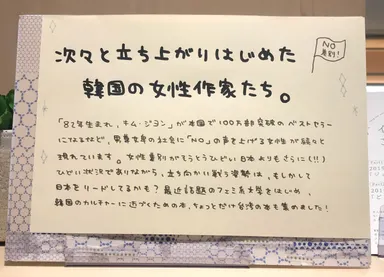 次々と立ち上がりはじめた
NO
差別!
韓国の女性作家たち。
「82年生まれ、キム・ジヨン」が本国で100万部突破のベストセラー
になるなど、男尊女卑の社会に「NO」の声を上げる女性が続々と
現れています。女性差別がそうとうひどい日本よりもさらに(!!)
ひどい状況でありながら、立ち向かい戦う姿勢は、もしかして
日本をリードしてるかも? 最近話題のフェミ系文学をはじめ、
韓国のカルチャーに近づくための本、ちょっとだけ台湾の本も集めました!